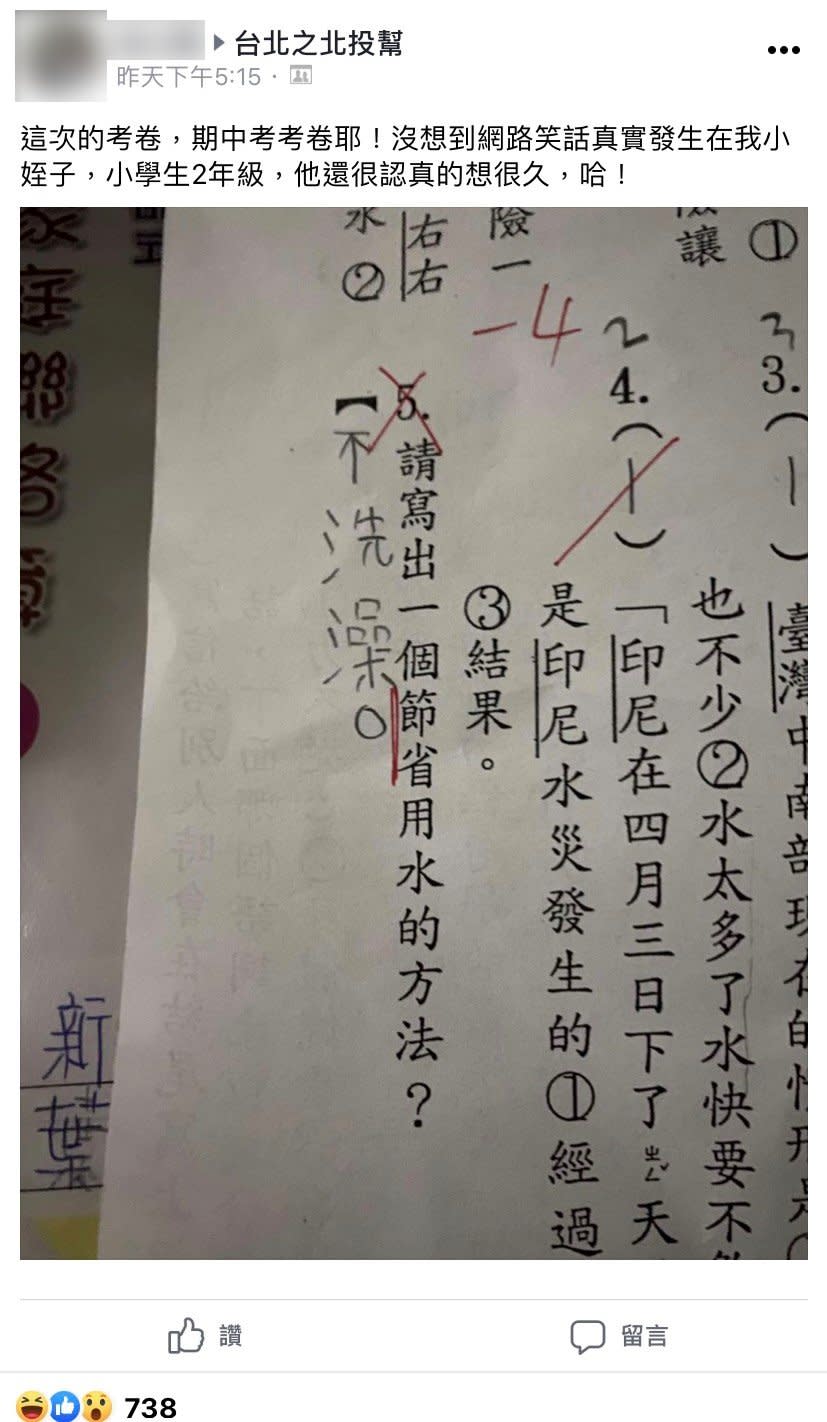 台北之北投幫
昨天下午5:15
這次的考卷，期中考考卷耶！沒想到網路笑話真實發生在我小
姪子，小學生2年級，他還很認真的想很久，哈！
讓
①
3
3.（1）臺灣中南部現在的情形是
也不少②水太多了水快要不
2
4.（1）「印尼在四月三日下了ㄓㄥˇ天
是印尼水災發生的①經過
險一
③結果。
-4
右右
5.請寫出一個節省用水的方法？
②
【不洗澡。
家庭聯絡簿
新
葉
讚
留言
738